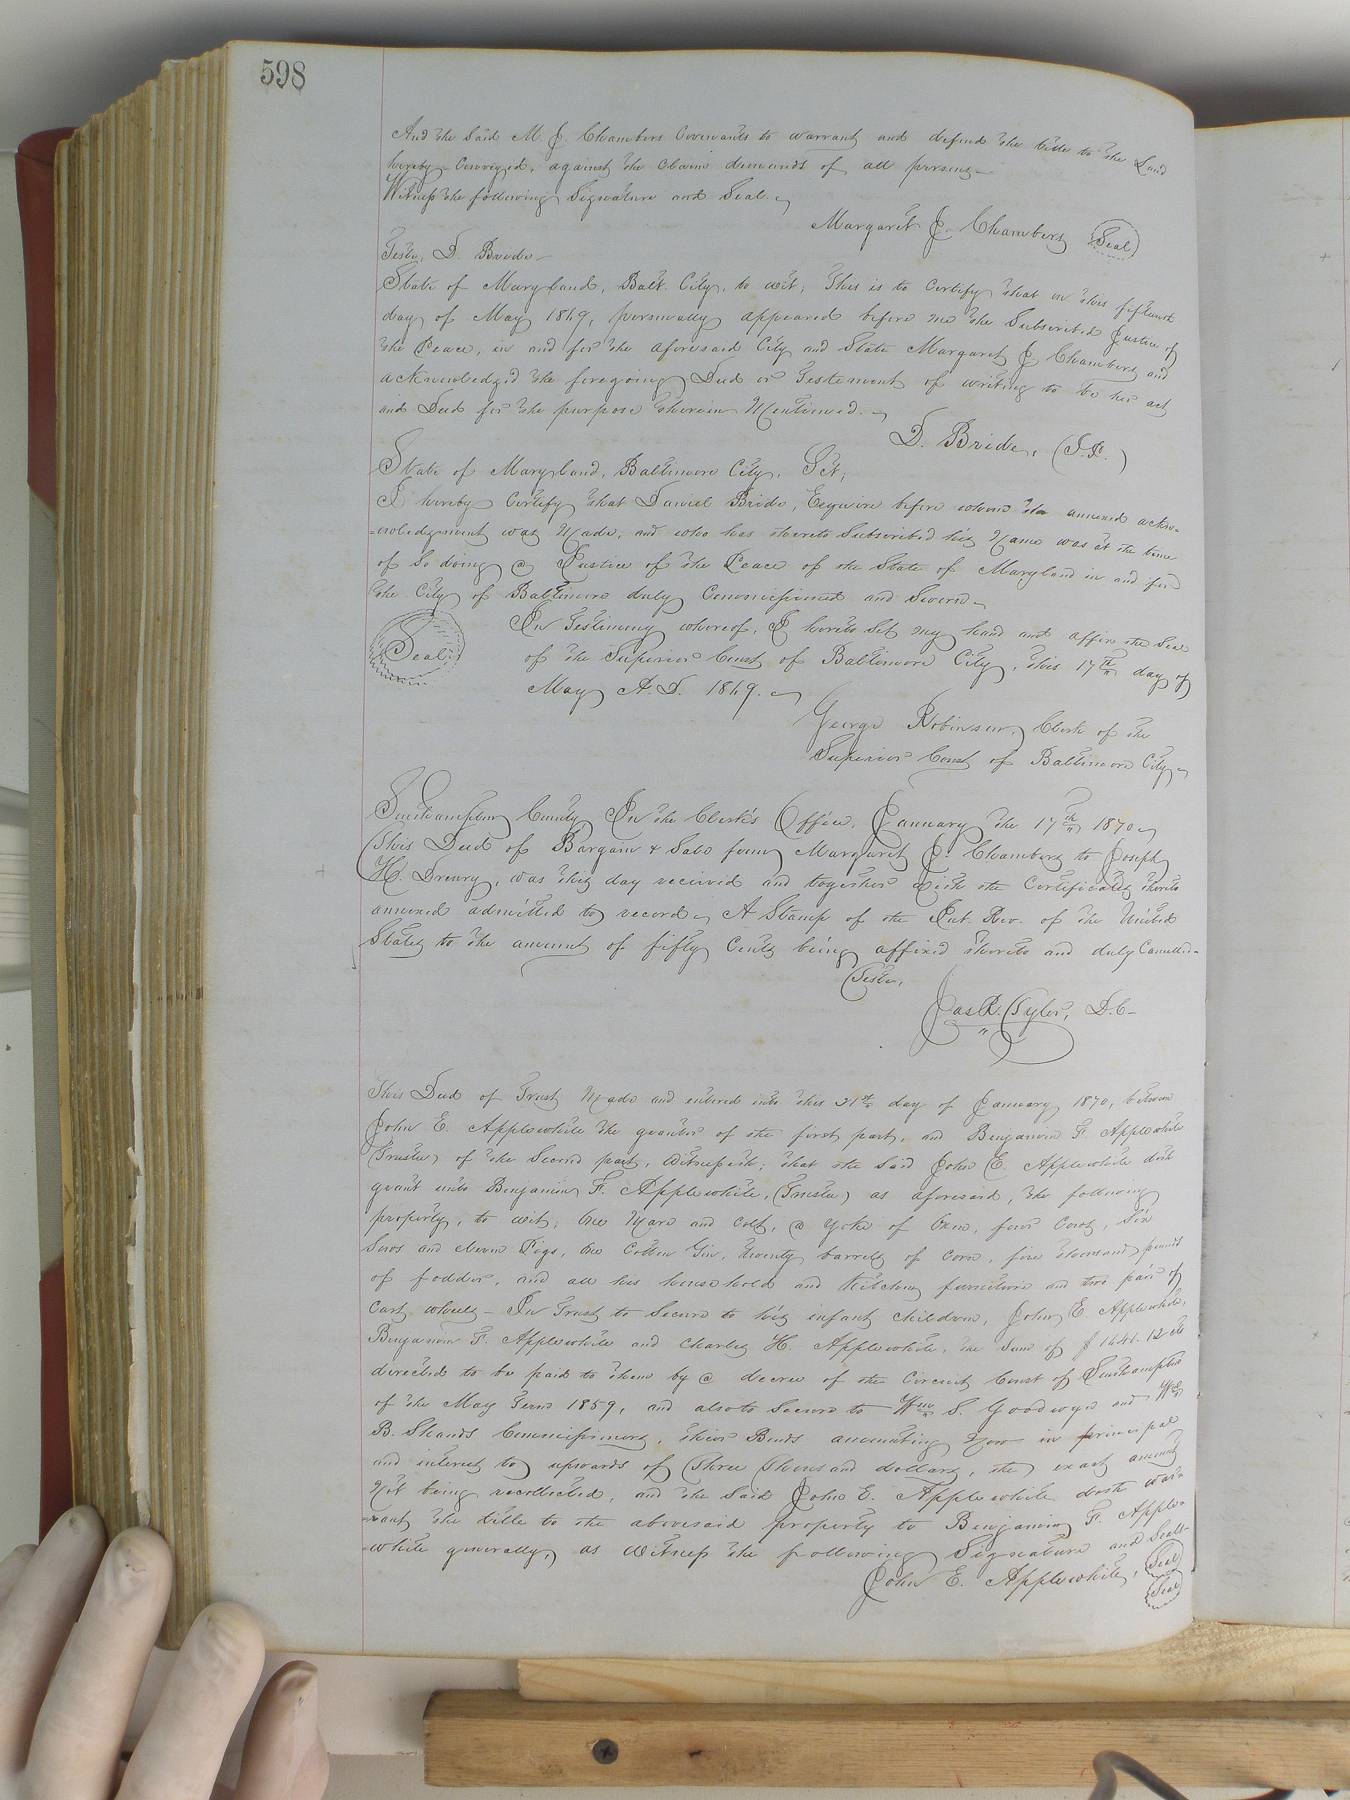 598
And the said M. J. Chambers Covenants to warrant and defend the title to the Land
hereby Conveyed, against the claim demands of all persons—
Witness the following Signature and Seal.
Margaret J. Chambers (Seal)
Teste, D. Bride—
State of Maryland, Balt. City, to wit; This is to Certify that on this fifteenth
day of May 1869, personally appeared before me the Subscribed Justice of
the Peace, in and for the aforesaid City and State Margaret J Chambers and
acknowledged the foregoing Deed or Testement of writing to be her act
and Deed for the purpose therein Mentioned.
D. Bride, (J.P.)
State of Maryland, Baltimore City, Sct;
I hereby Certify that Daniel Bride, Esquire before whom the annexed ackn-
-owledgment was Made, and who has thereto Subscribed his Name was at the time
of So doing a Justice of the Peace of the State of Maryland in and for
the City of Baltimore duly Commissioned and Sworn—
(Seal)
In Testimony whereof, I hereto Set my hand and affix the Seal
of the Superior Court of Baltimore City, this 17th day of
May A.D. 1869.
George Robinson, Clerk of the
Superior Court of Baltimore City
Southampton County In the Clerk's Office, January the 17th 1870
This Deed of Bargain & Sale from Margaret J. Chambers to Joseph
H. Drewry, was this day received and together with the Certificates thereto
annexed admitted to record. A Stamp of the Int. Rev. of the United
States to the amount of fifty Cents being affixed thereto and duly Cancelled—
Teste,
Jas. R. Tyler, D.C—
This Deed of Trust Made and entered into this 21st day of January 1870, between
John E. Applewhite the grantor of the first part, and Benjamin F. Applewhite
(Trustee) of the Second part, Witnesseth; that the Said John E. Applewhite doth
grant unto Benjamin F. Applewhite, (Trustee) as aforesaid, the following
property, to wit; One Mare and colt, a yoke of Oxen, four Cows, Six
Sows and eleven Pigs, One Cotton Gin, twenty barrels of Corn, five thousand pounds
of fodder, and all his household and Kitchen furniture and two pair of
Cart wheels— In Trust to Secure to his infant children, John E. Applewhite,
Benjamin F. Applewhite and Charles H. Applewhite, the Sum of $ 1441.12 cts
directed to be paid to them by a decree of the Circuit Court of Southampton
of the May Term 1859, and also to Secure to Wm S. Goodwyn and Wm
B. Shands Commissioners, their Bonds amounting Now in principal
and interest to upwards of Three Thousand dollars, the exact amount
Not being recollected, and the Said John E. Applewhite doth war-
-rant the title to the abovesaid property to Benjamin F. Apple-
-white generally, as Witness the following Signature and Seal—
John E. Applewhite, (Seal)
(Seal)